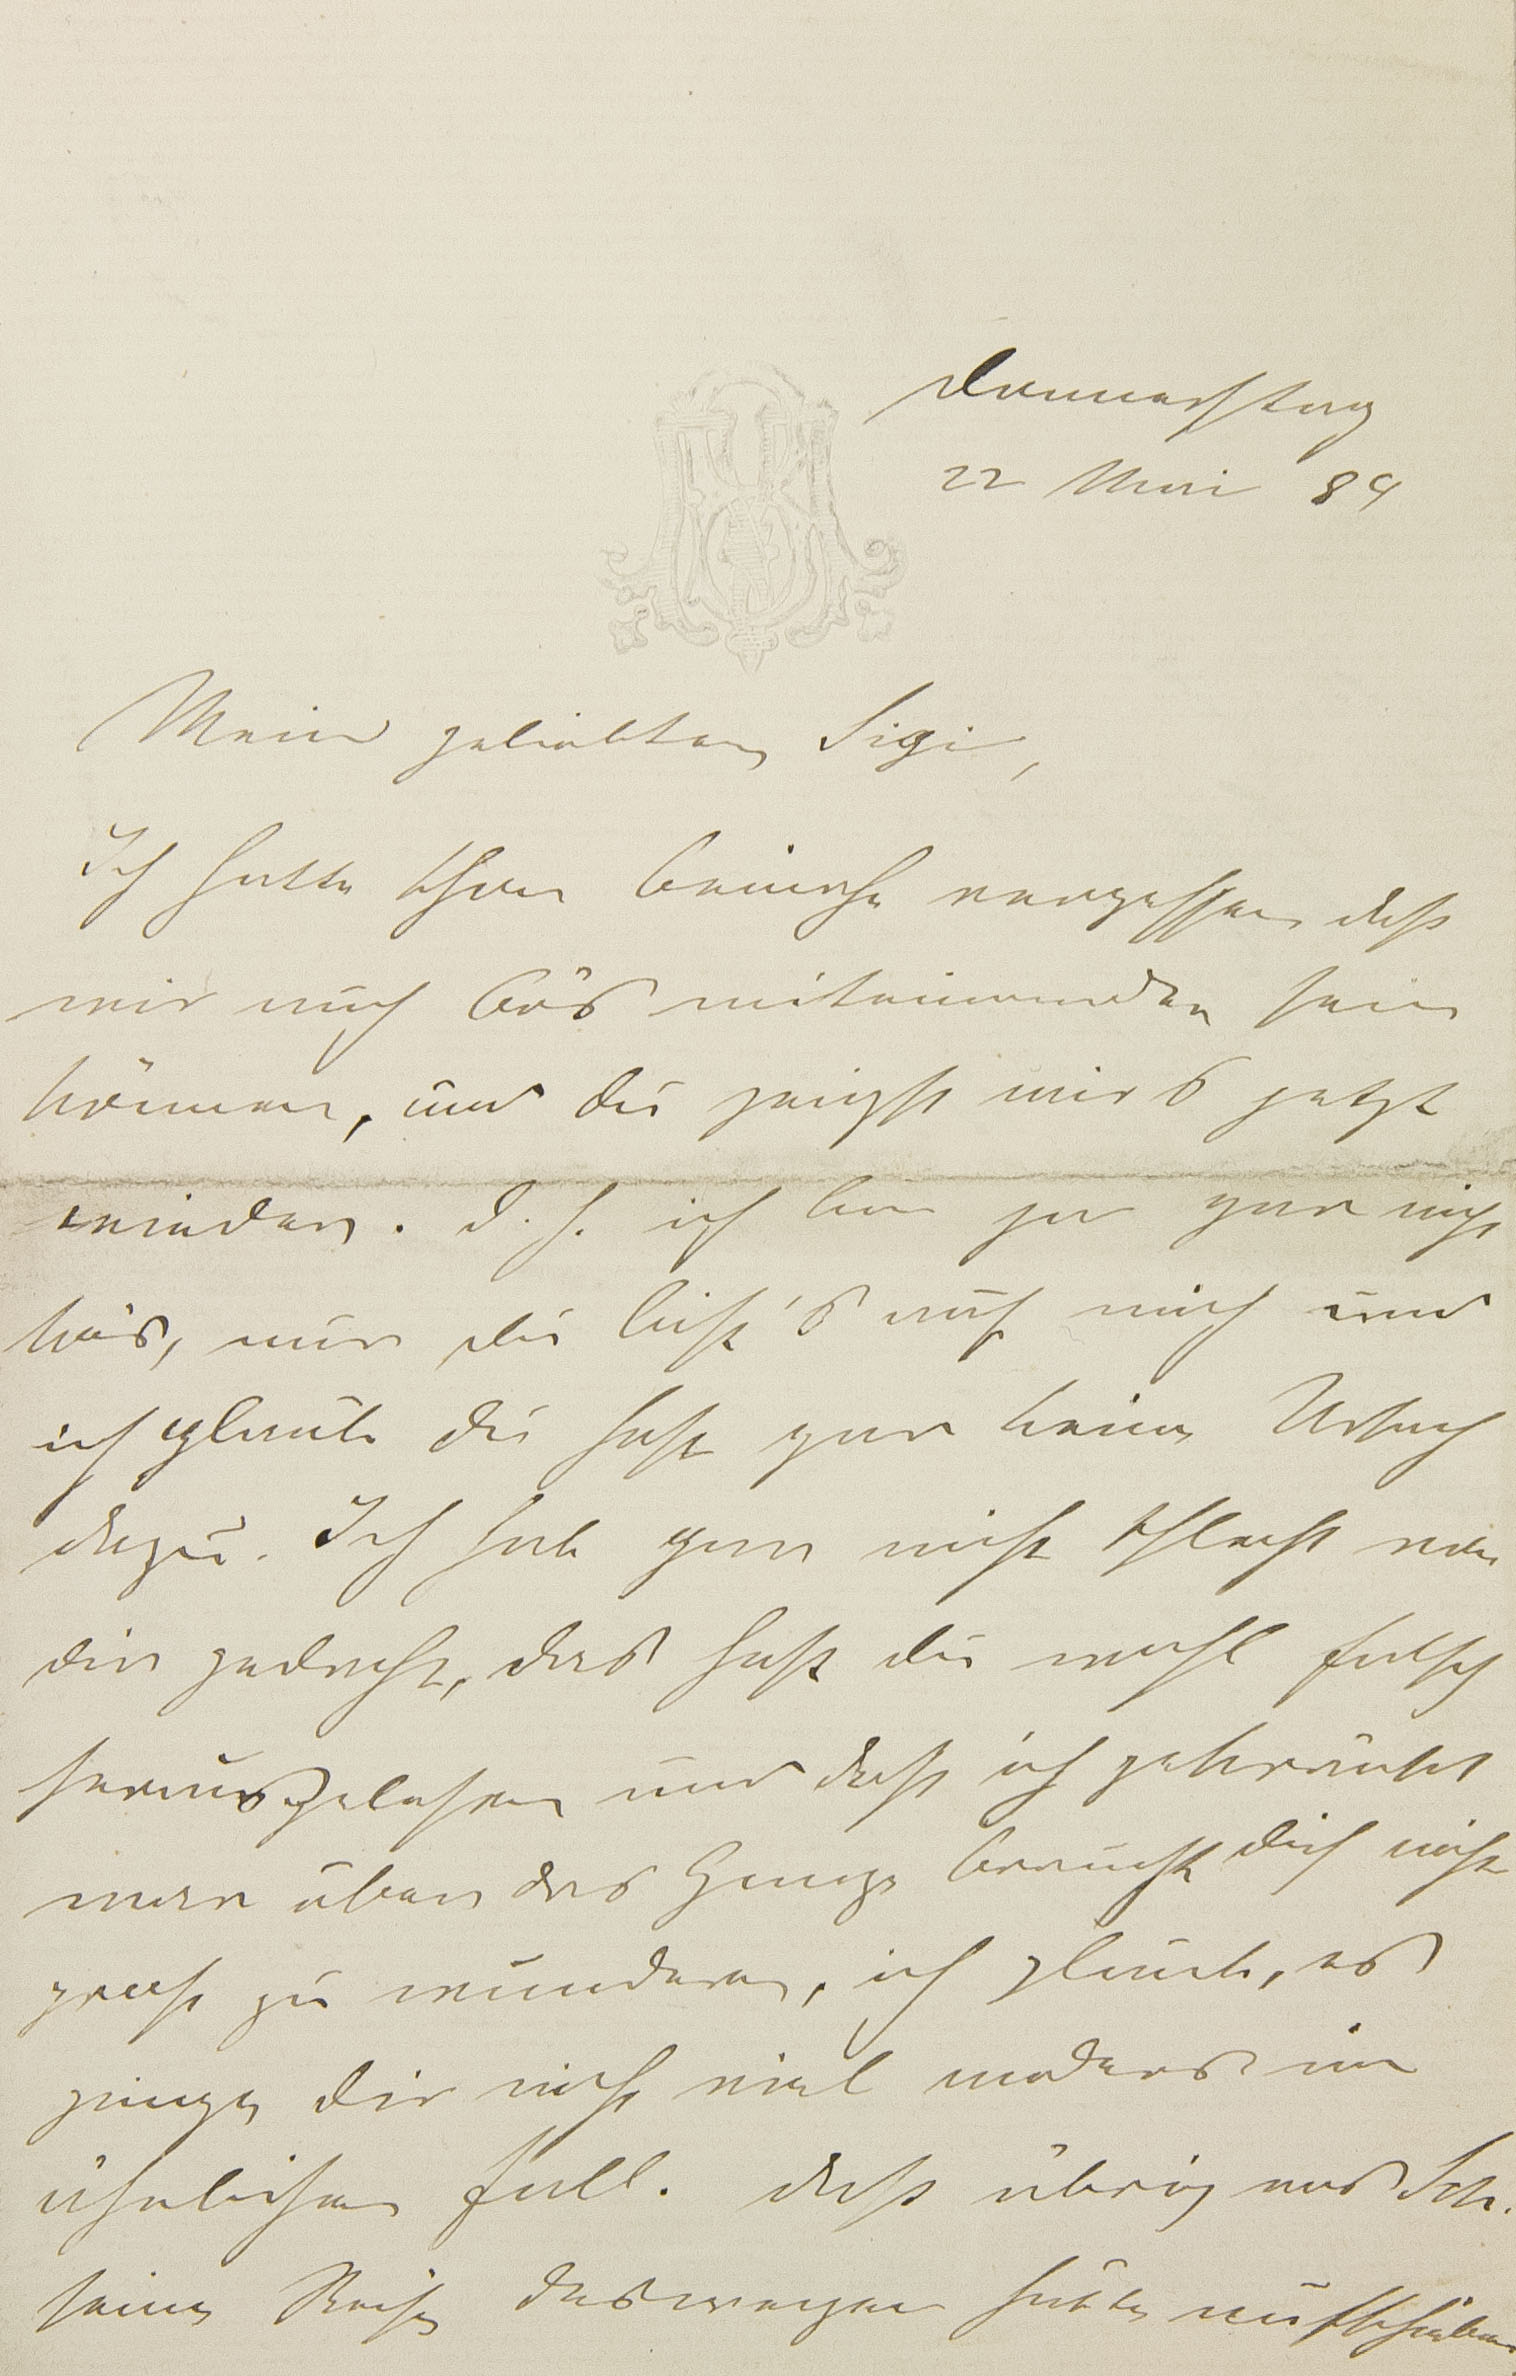 Donnerstag
22 Mai 84
Mein geliebter Sigi,
Ich hatte schon beinahe vergessen daß
wir auch bös miteinander sein
können, und du zeigst mirs jetzt
wieder. d. h. ich bin ja gar nicht
bös, nur du bist's auf mich und
ich glaube du hast gar keine Ursach
dazu. Ich hab gar nicht schlecht von
dir gedacht, das hast du wohl falsch
herausgelesen und daß ich gekränkt
war über das Ganze brauchst dich nicht
groß zu wundern, ich glaube, es
ginge dir nicht viel anders im
ähnlichen Fall. daß übrigens Sch.
seine Reise deswegen hätte aufschieben